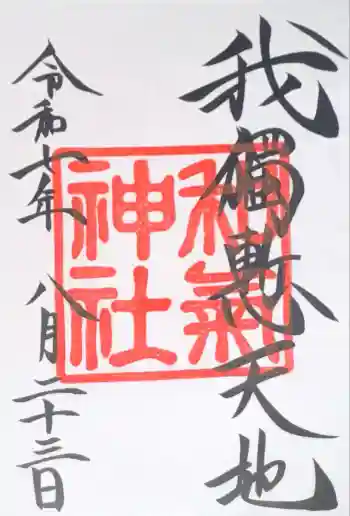 我獨慙天地
和氣神社
令和七年 八月二十三日